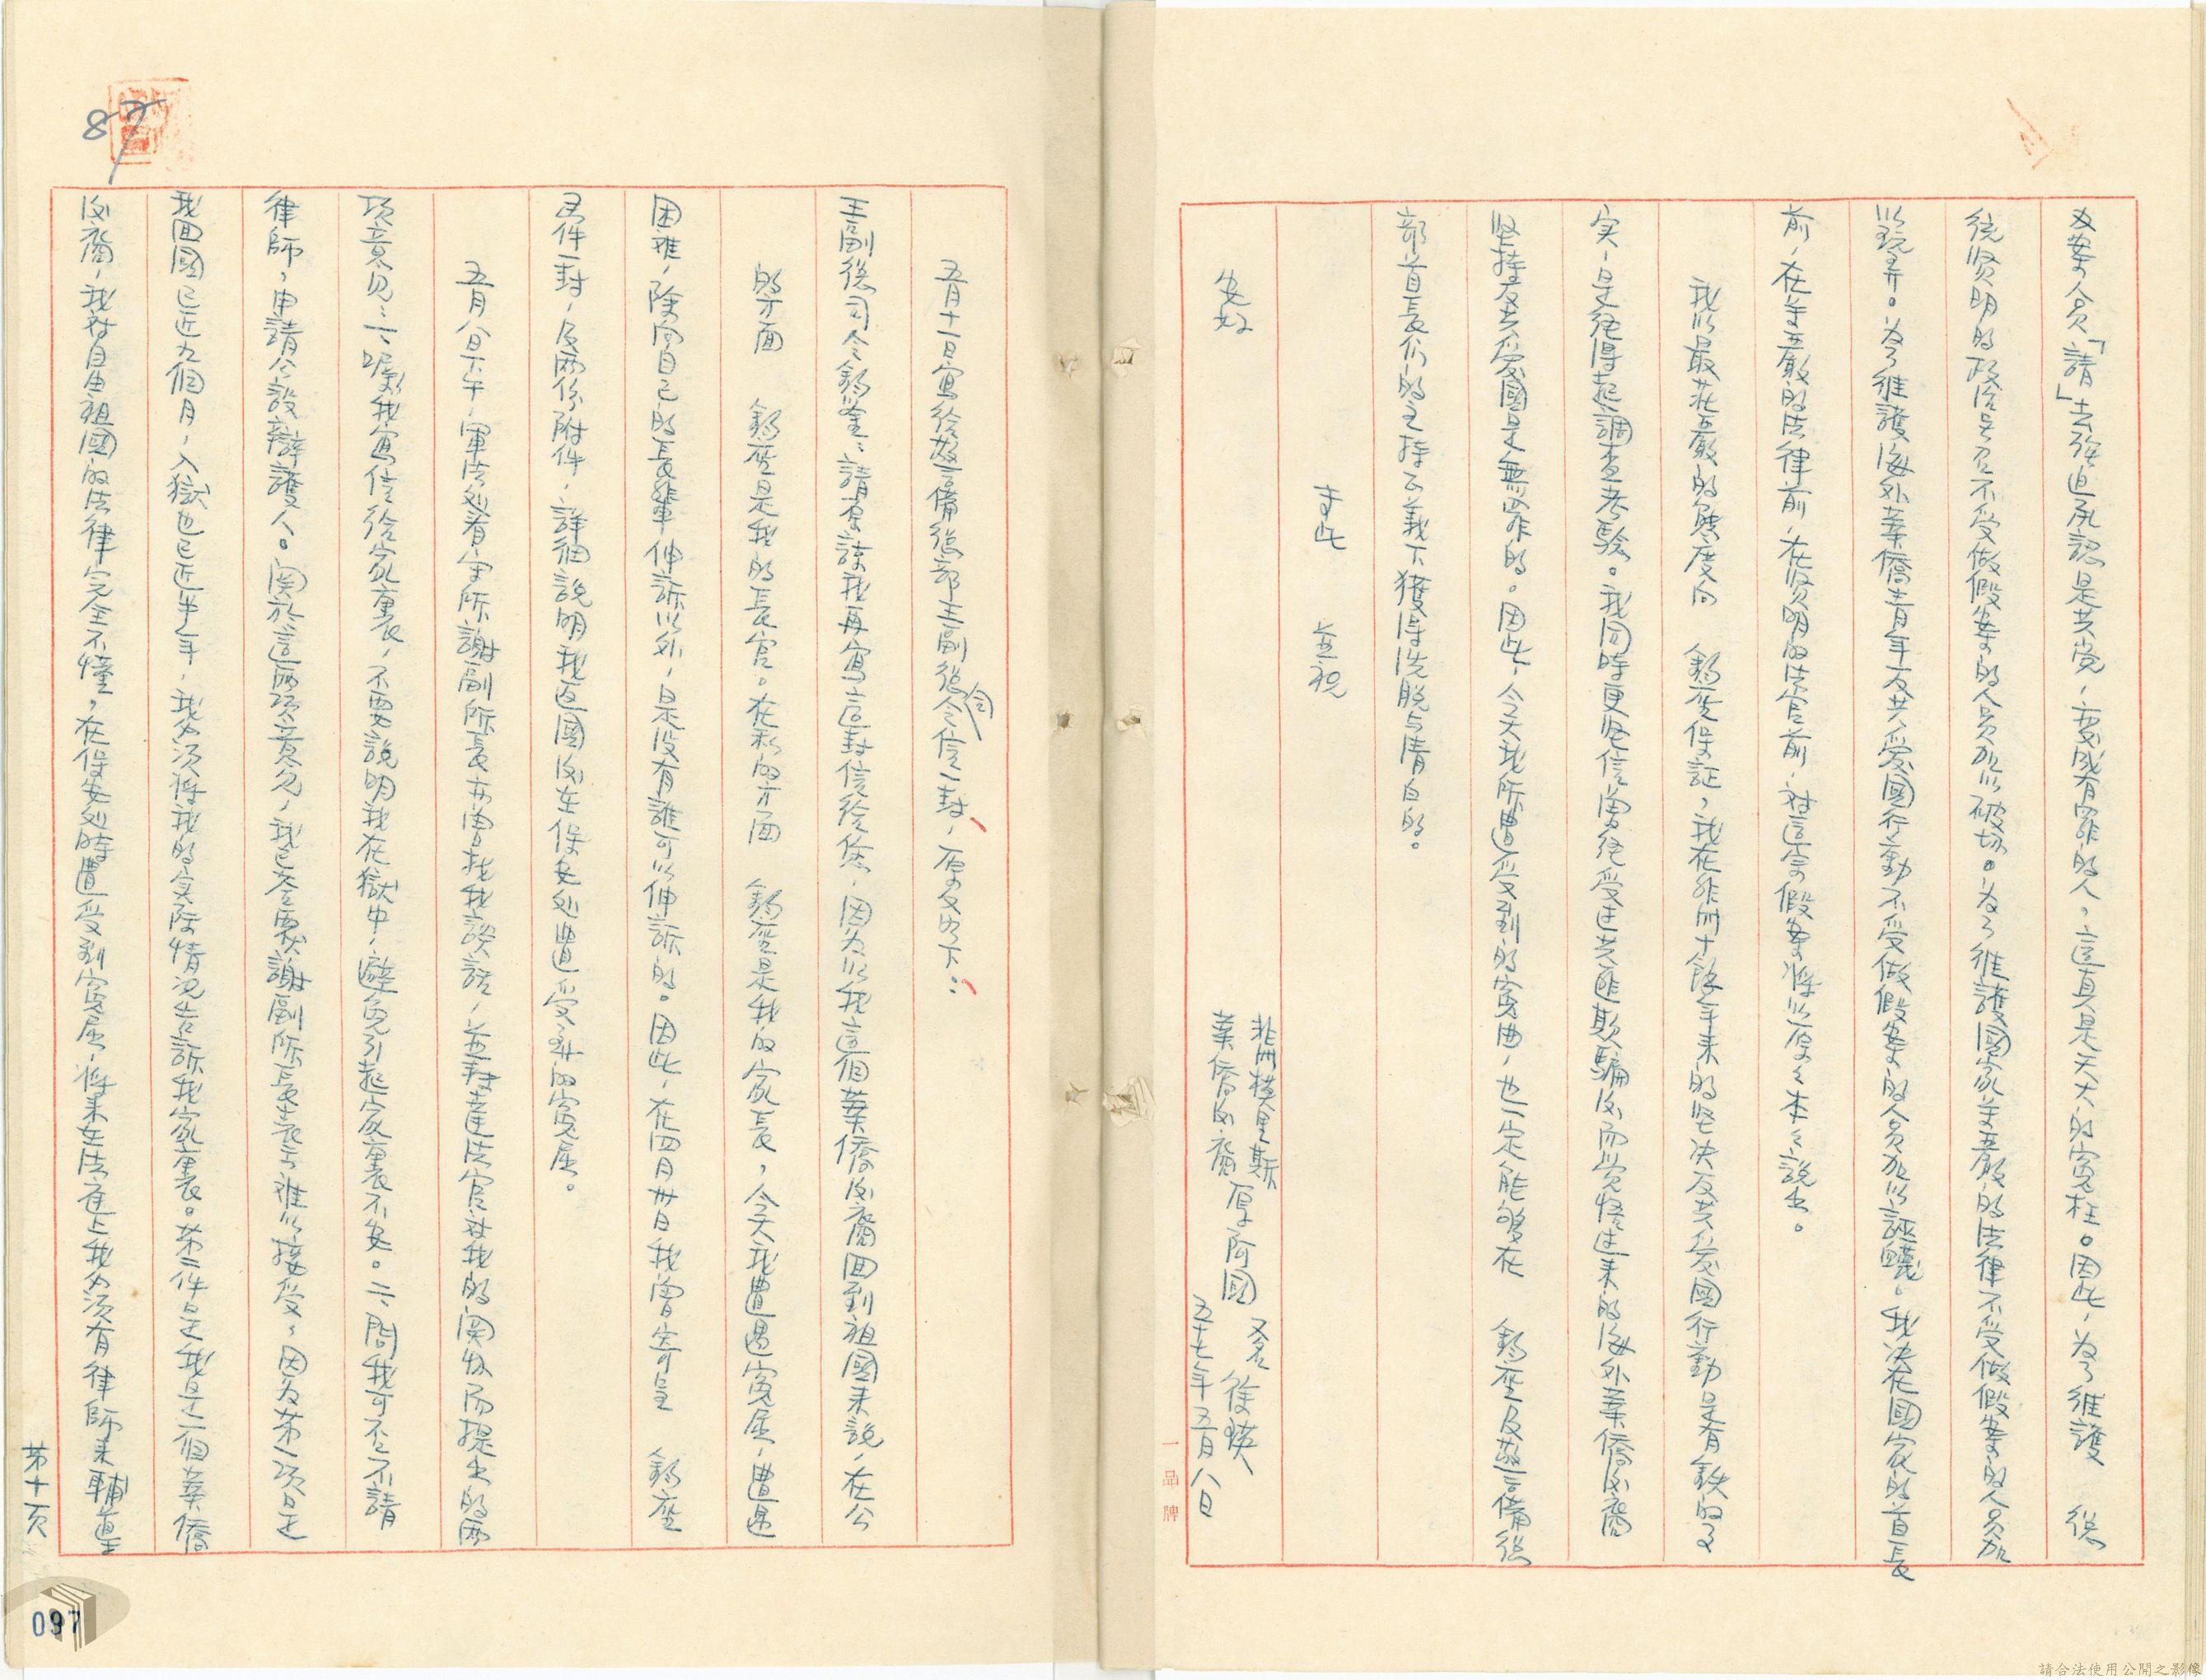 及案人员「請」去強迫承認是共党，变成有罪的人，這真是天大的寃枉。因此，为了維護　　總
統贤明的政治号召不受做假案的人员加以破坏。为了維護國家尊嚴的法律不受做假案的人员加
以玩弄。为了維護海外華僑青年反共愛國行動不受做假案的人员加以誣衊。我决在國家的首長
前，在尊嚴的法律前，在贤明的法官前，对這宗假案将以原原本本說出。
我以最莊嚴的態度向　鈞座保証，我在非洲十餘年来的坚决反共愛國行動是有鉄的事
实，是経得起調查考驗。我同時更坚信曾経受过共匪欺騙後而觉悟过来的海外華僑後裔
坚持反共愛國是無罪的。因此，今天我所遭受到的寃曲，也一定能够在　鈞座及警備總
部首長们的主持正義下獲得洗脱与清白的。
专此　並祝
安好
非洲模里斯
華僑後裔　厚阿國
又名　徐瑛
五十七年五月八日
一品牌
五月十一日寫给警備總部王副總司令信一封，原文如下：
王副總司令鈞鉴：請原諒我再寫這封信给您，因为以我這個華僑後裔回到祖國来說，在公
的方面　鈞座是我的長官。在私的方面　鈞座是我的家長，今天我遭遇寃屈，遭遇
困难，除向自己的長輩伸訴以外，是没有誰可以伸訴的。因此，在四月卅日我曾寄呈　鈞座
函件一封，及两份附件，詳细說明我返國後在保安处遭受到的寃屈。
五月八日下午，軍法处看守所謝副所長亦曾找我談話，並轉達法官对我的関怀而提出的两
項意見：一、嘱我寫信给家裏，不要說明我在獄中，避免引起家裏不安。二、問我可否不請
律師，申請公設辯護人。関於這两項意見，我已答覆謝副所長表示难以接受，因为第一項是
我回國已近九個月，入獄也已近半年，我必須将我的实际情况告訴我家裏。第二件是我是一個華僑
後裔，我对自由祖國的法律完全不懂，在保安处時遭受到寃屈，将来在法庭上我必須有律師来輔導
第十頁
87
097
請合法使用公開之影像